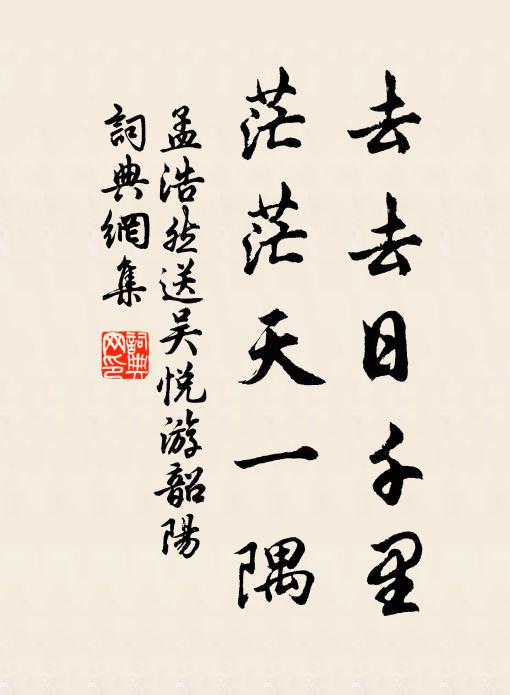 去去日千里
茫茫天一隅
孟浩然送吴悦游韶陽
詞典網集
詞典網印